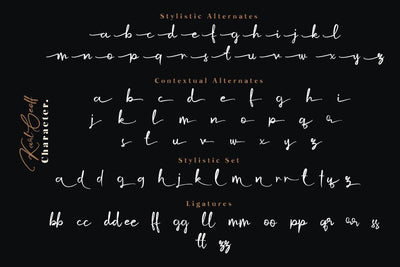 Stylistic Alternates
a b c d e f g h i j k l
m n o p q r s t u v w x y z
Contextual Alternates
a b c d e f g h i
j k l m n o p q r
s t u v w x y z
Stylistic Set
a d d g h j k l m n r r t y z
Ligatures
bb cc dd ee ff gg ll mm oo pp qr rr ss
tt zz
Character.